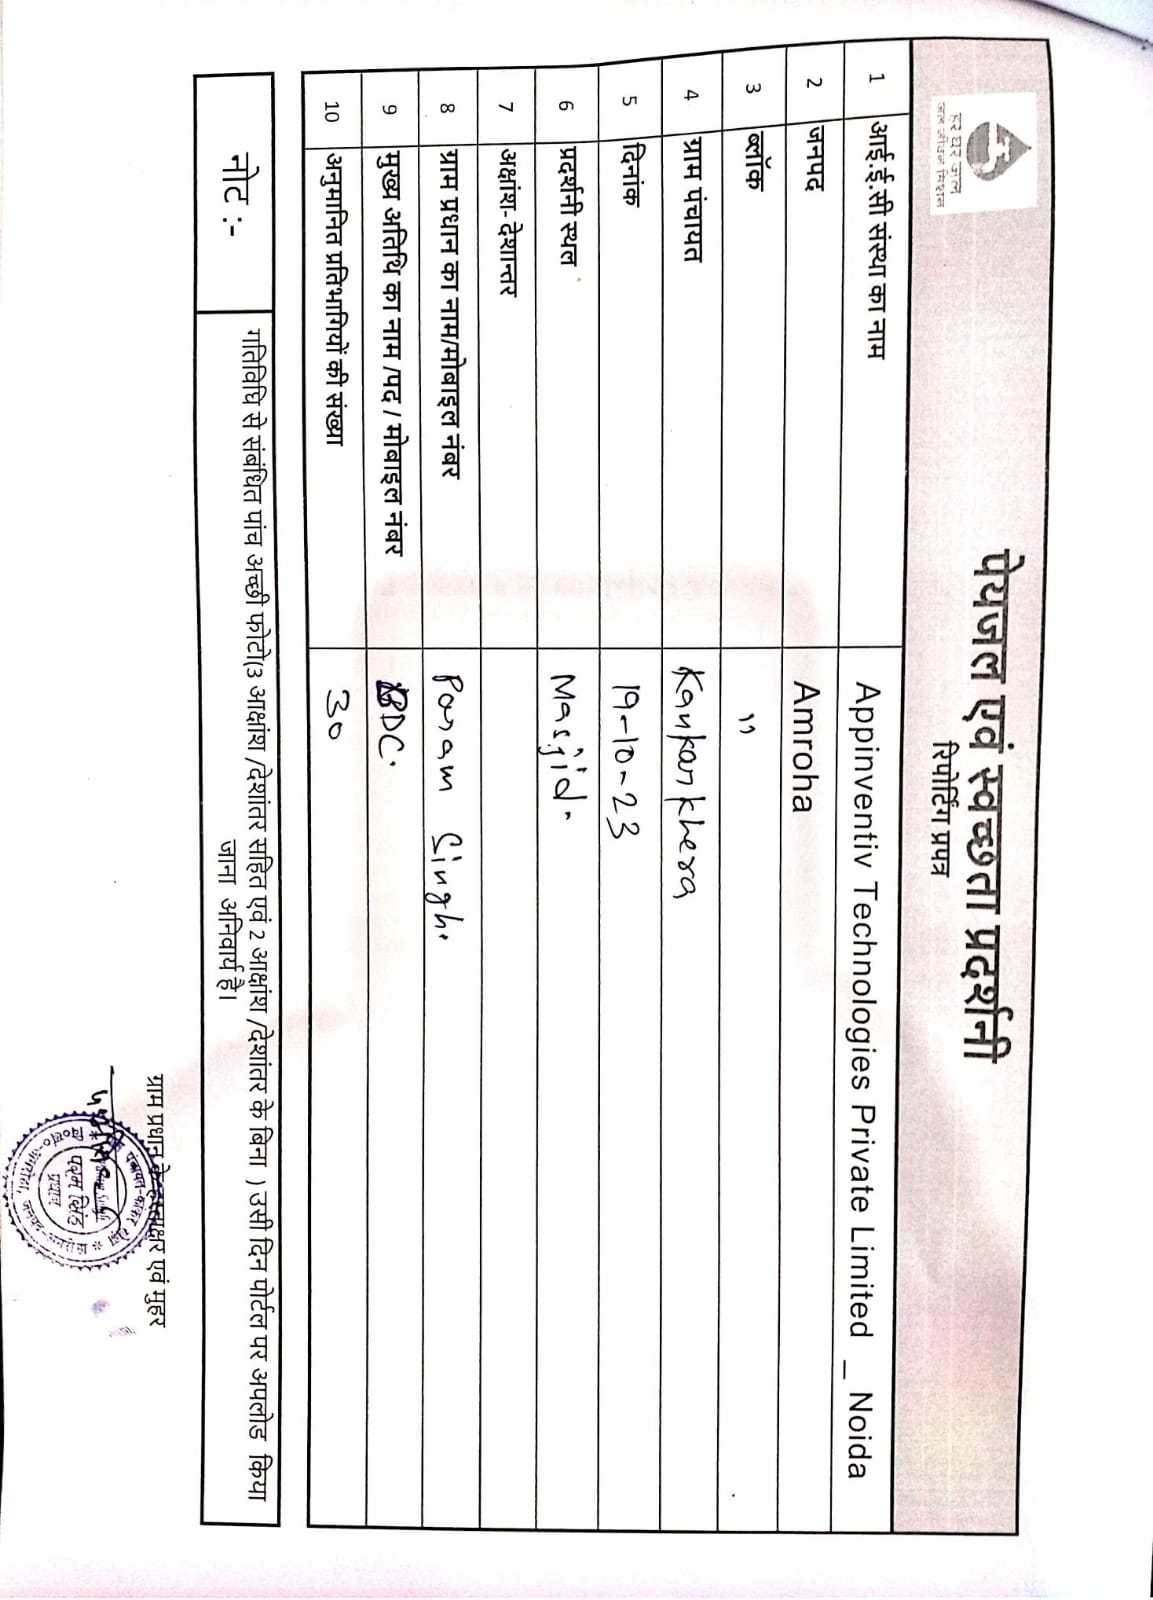 हर घर जल
जल जीवन मिशन
पेयजल एवं स्वच्छता प्रदर्शनी
रिपोर्टिंग प्रपत्र
1 आई.ई.सी संस्था का नाम Appinventiv Technologies Private Limited _ Noida
2 जनपद Amroha
3 ब्लॉक "
4 ग्राम पंचायत Kankarkhera
5 दिनांक 19-10-23
6 प्रदर्शनी स्थल Masjid.
7 अक्षांश- देशान्तर
8 ग्राम प्रधान का नाम/मोबाइल नंबर Param Singh.
9 मुख्य अतिथि का नाम /पद / मोबाइल नंबर BDC.
10 अनुमानित प्रतिभागियों की संख्या 30
नोट :- गतिविधि से संबंधित पांच अच्छी फोटो(3 आक्षांश /देशांतर सहित एवं 2 आक्षांश /देशांतर के बिना ) उसी दिन पोर्टल पर अपलोड किया
जाना अनिवार्य है।
ग्राम प्रधान के हस्ताक्षर एवं मुहर
परम सिंह
प्रधान